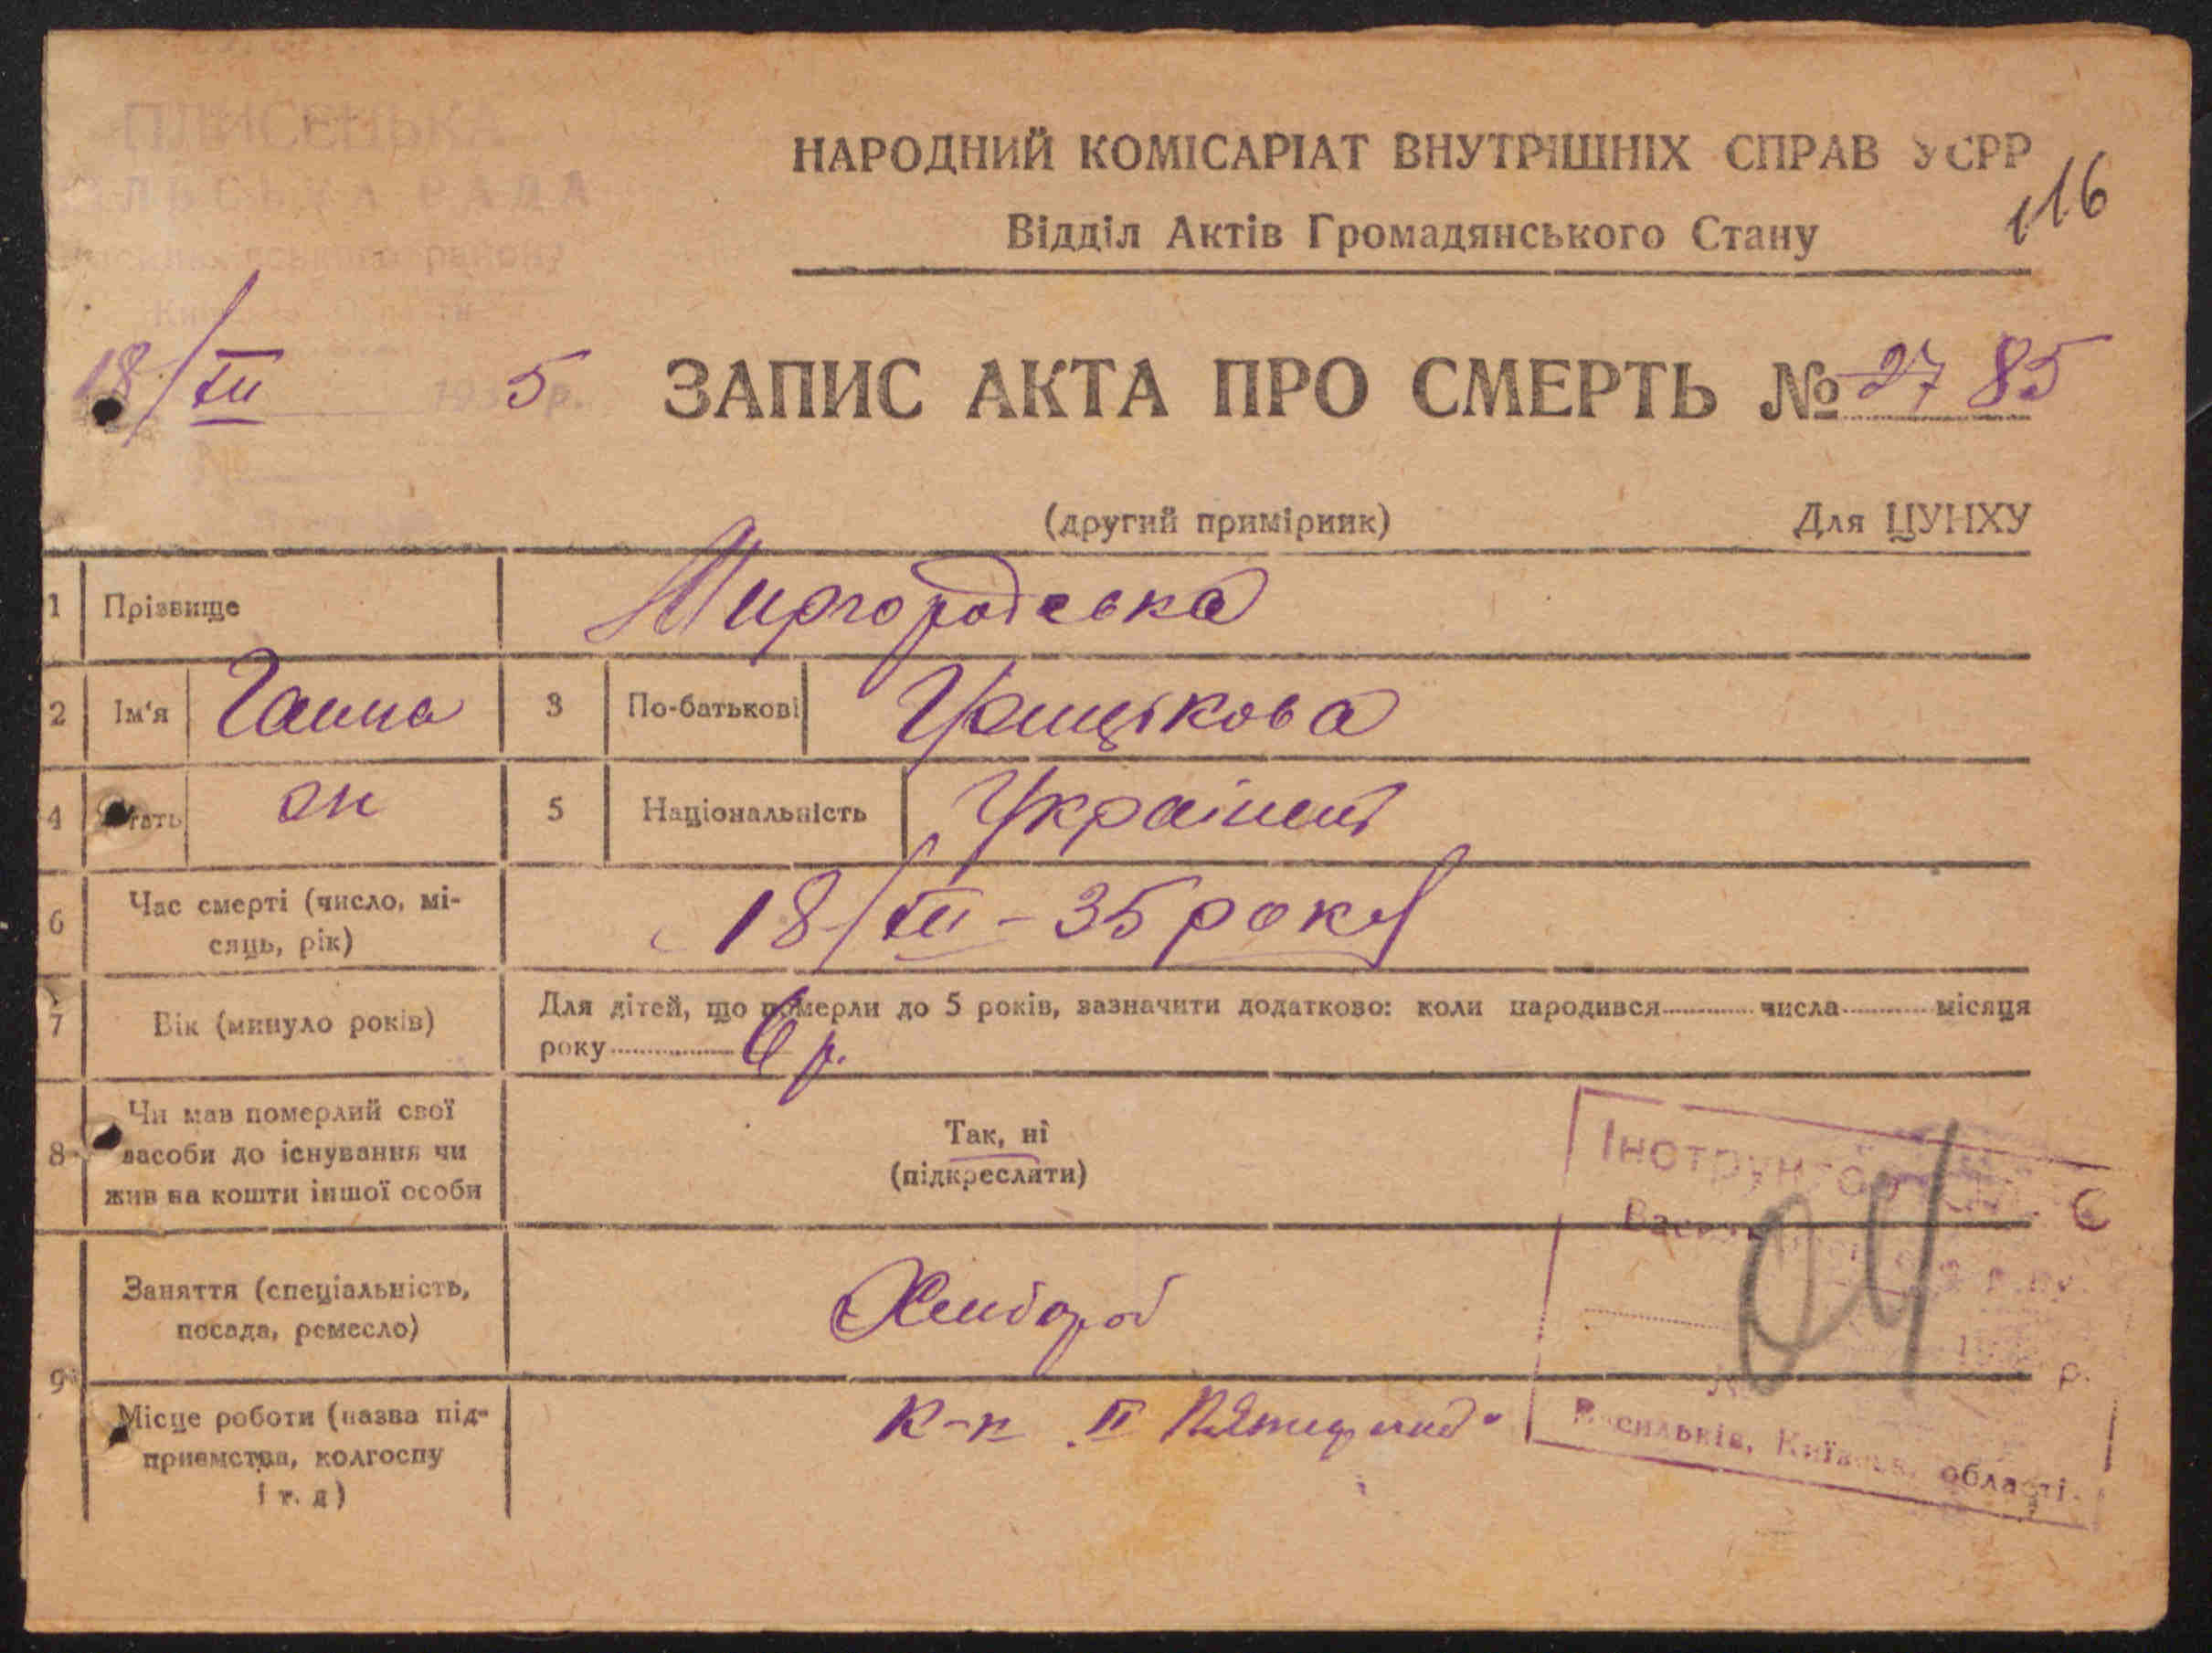 ПЛИСЕЦЬКА
СІЛЬСЬКА РАДА
району
НАРОДНИЙ КОМІСАРІАТ ВНУТРІШНІХ СПРАВ УСРР
116
Відділ Актів Громадянського Стану
18/XII 1935 р.
ЗАПИС АКТА ПРО СМЕРТЬ № 27 85
(другий примірник)
Для ЦУНХУ
1 Прізвище Миргородська
2 Ім'я Ганна 3 По-батькові Грицікова
4 Стать жн 5 Національність Україн
6 Час смерті (число, місяць, рік) 18/XII – 35 року
7 Вік (минуло років) Для дітей, що померли до 5 років, зазначити додатково: коли народився числа місяця
року 6 р.
8 Чи мав померлий свої
засоби до існування чи
жив на кошти іншої особи
Так, ні
(підкреслити)
Заняття (спеціальність,
посада, ремесло)
Хлибороб
9 Місце роботи (назва під-
приємства, колгоспу
і т. д)
К-п II
04
р.
Васильків, Київськ. області.